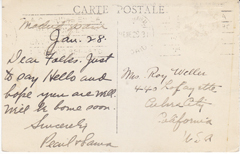 CARTE POSTALE
Jan. 28.
Dear Folks. Just
to say Hello and
hope you are well
Will be home soon.
Sincerely
Pearl &
Mrs Roy Weller
443 Lafayette
City
California
U.S.A